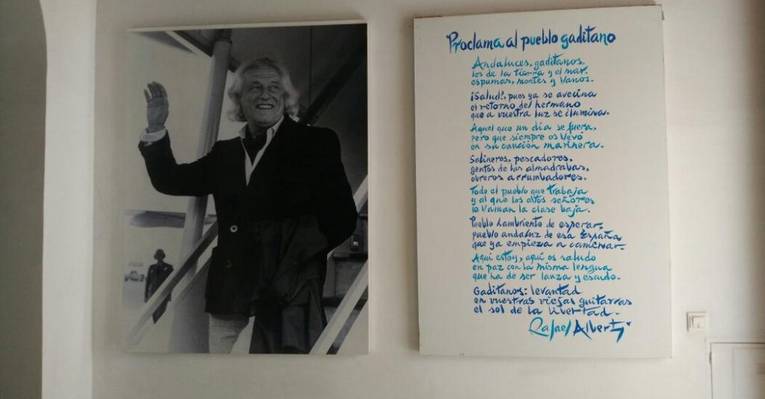 Proclama al pueblo gaditano
Andaluces, gaditanos,
los de la tierra y el mar,
espumas, montes y llanos.
¡Salud!, pues ya se avecina
el retorno del hermano
que a vuestra luz se ilumina.
Aquel que un día se fuera,
pero que siempre os llevó
en su canción marinera.
Salineros, pescadores,
gentes de las almadrabas,
obreros arrumbadores.
Todo el pueblo que trabaja
y al que los altos señores
lo llaman la clase baja.
Pueblo hambriento de esperar,
pueblo andaluz de esa España
que ya empieza a caminar.
Aquí estoy, aquí os saludo
en paz con la misma lengua
que ha de ser lanza y escudo.
Gaditanos: levantad
en vuestras viejas guitarras
el sol de la libertad.
Rafael Alberti